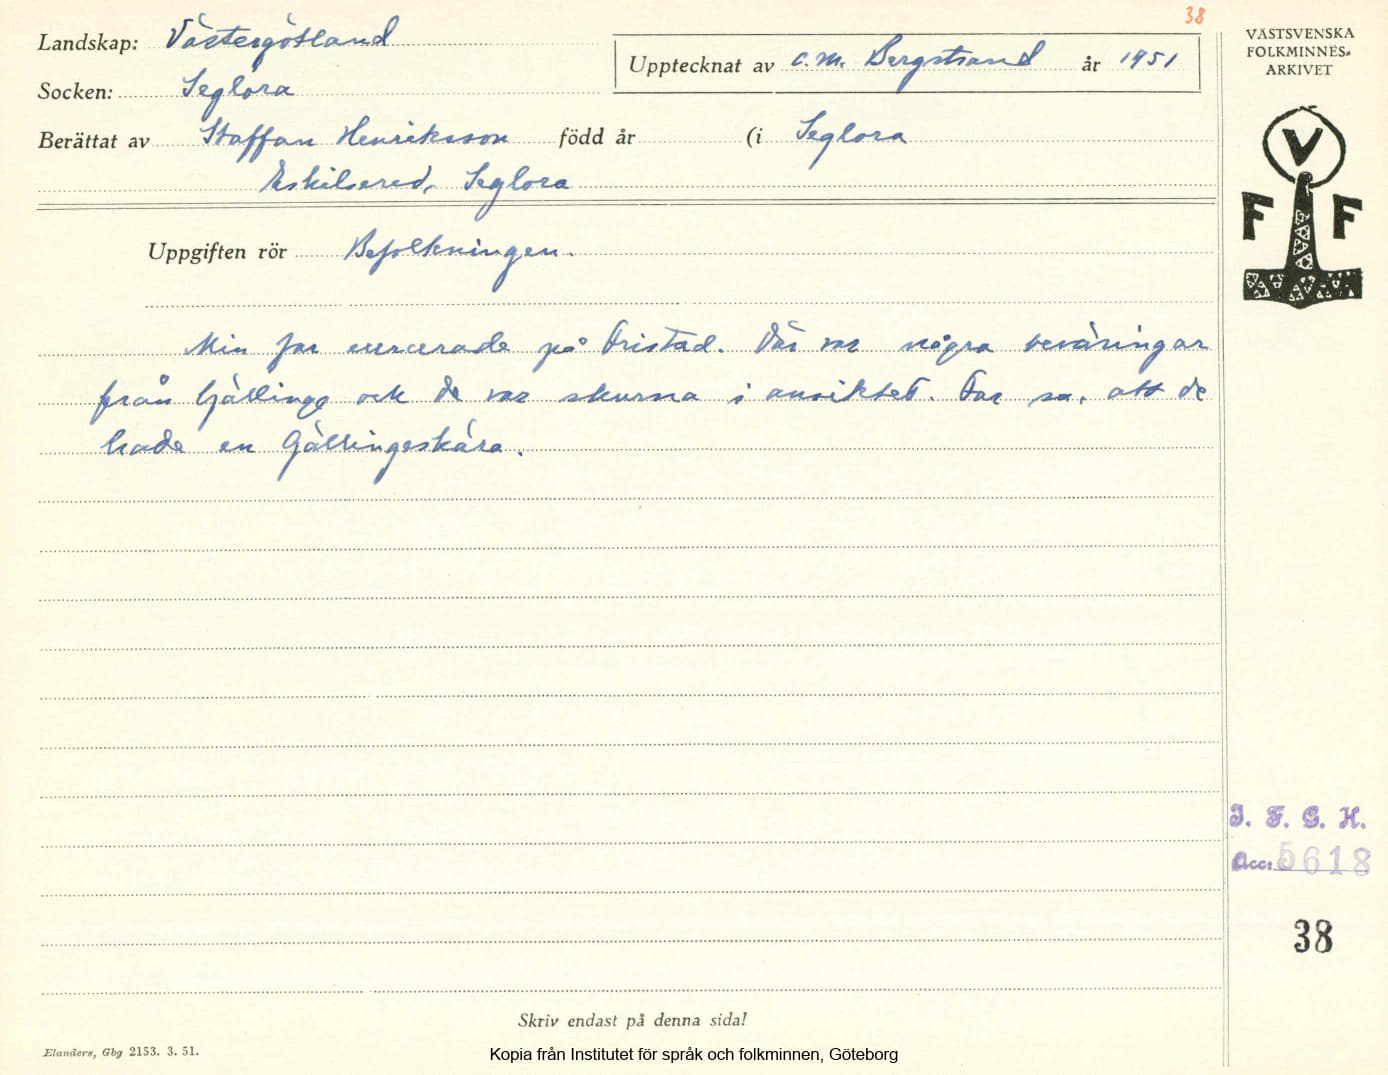 38
Landskap: Västergötland
Upptecknat av C. M. Bergstrand år 1951
Socken: Seglora
Berättat av Staffan Henriksson född år (i Seglora
Eskilsered, Seglora
Uppgiften rör Befolkningen.
Min far exercerade på Fristad. Där var några beväringar
från Gällinge ock de var skurna i ansiktet. Far sa, att de
hade en Gällingeskåra.
VÄSTSVENSKA
FOLKMINNES-
ARKIVET
V
F F
I. F. G. H.
Acc: 5618
38
Skriv endast på denna sida!
Elanders, Gbg 2153. 3. 51.
Kopia från Institutet för språk och folkminnen, Göteborg